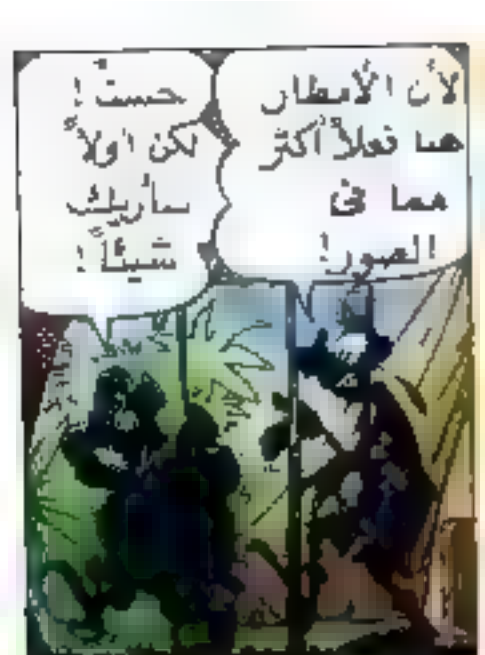 لأن الأمطار
هنا فعلاً أكثر
مما فى
الصور!
حسناً!
لكن أولاً
سأريك
شيئاً!